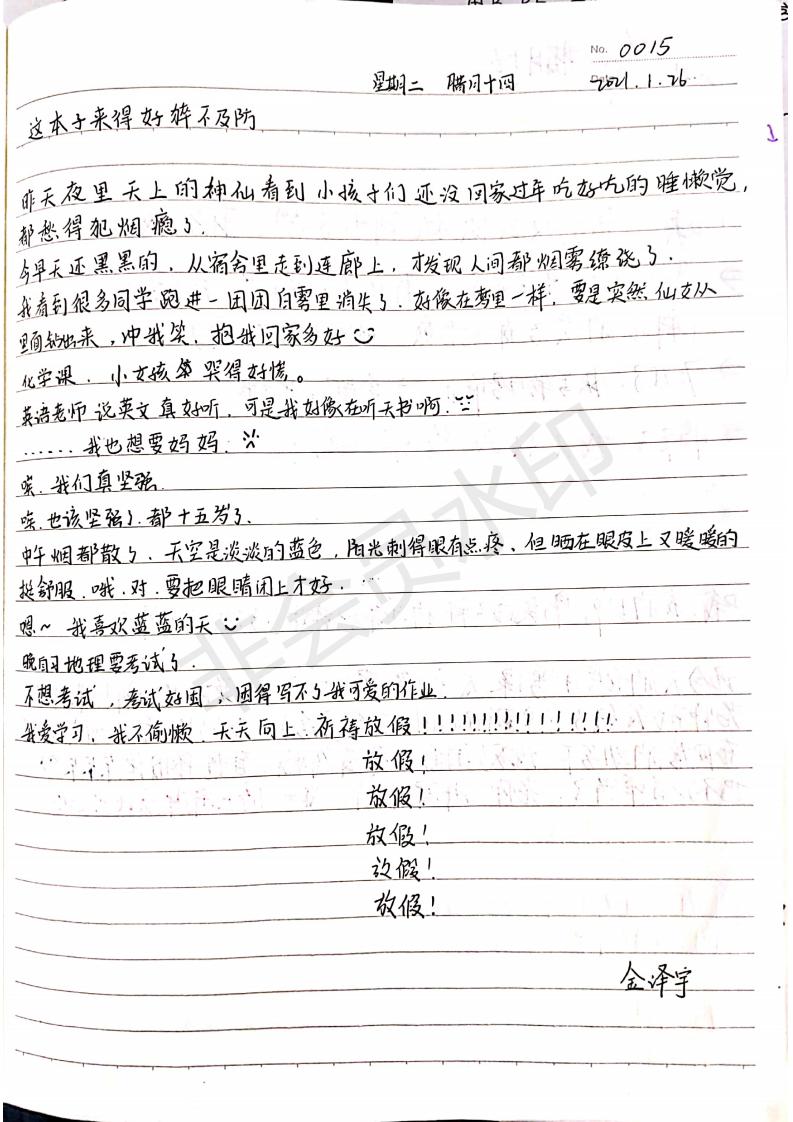 No. 0015
星期二 腊月十四 2021.1.26
这本子来得好猝不及防
昨天夜里天上的神仙看到小孩子们还没回家过年吃好吃的睡懒觉，
都愁得犯烟瘾了．
今早天还黑黑的，从宿舍里走到连廊上，才发现人间都烟雾缭绕了．
我看到很多同学跑进一团团白雾里消失了．好像在雾里一样，要是突然仙女从
里面钻出来，冲我笑．抱我回家多好
化学课．小女孩 哭得好惨。
英语老师说英文真好听，可是我好像在听天书啊．
……我也想要妈妈．
唉．我们真坚强．
唉．也该坚强了．都十五岁了．
中午烟都散了．天空是淡淡的蓝色，阳光刺得眼有点疼、但晒在眼皮上又暖暖的
挺舒服．哦．对．要把眼睛闭上才好．…
嗯~ 我喜欢蓝蓝的天
晚自习地理要考试了．
不想考试，考试好困，困得写不了我可爱的作业．
我爱学习，我不偷懒．天天向上．祈祷放假！！！！！！！！！！！！！！！！
放假！
放假！
放假！
放假！
放假！
金泽宇
非会员水印